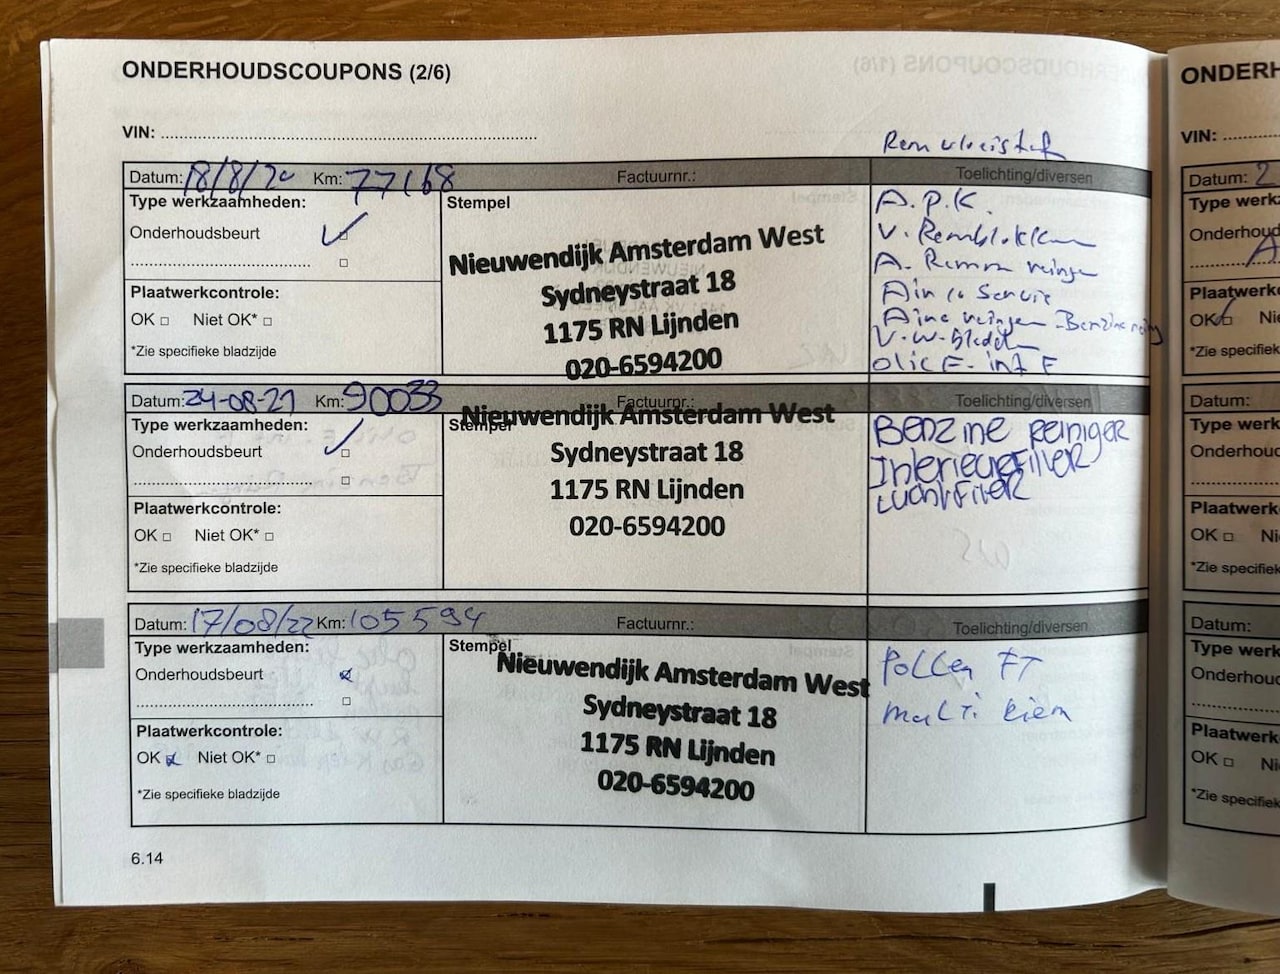 ONDERHOUDSCOUPONS (2/6)
VIN:
Datum: 18/8/20 Km: 77168 Factuurnr.: Toelichting/diversen
Type werkzaamheden:
Onderhoudsbeurt
Plaatwerkcontrole:
OK Niet OK*
*Zie specifieke bladzijde
Stempel
Nieuwendijk Amsterdam West
Sydneystraat 18
1175 RN Lijnden
020-6594200
Remvloeistof
A.P.K.
V. Remblokken
A. Remmen
Airco Servic
Benzine
V.W.
olie F. int F
Datum: 24-08-21 Km: 90033 Factuurnr.: Toelichting/diversen
Type werkzaamheden:
Onderhoudsbeurt
Plaatwerkcontrole:
OK Niet OK*
*Zie specifieke bladzijde
Stempel
Nieuwendijk Amsterdam West
Sydneystraat 18
1175 RN Lijnden
020-6594200
Benzine Reiniger
InterieurFilter
LuchtFilter
Datum: 17/08/22 Km: 105594 Factuurnr.: Toelichting/diversen
Type werkzaamheden:
Onderhoudsbeurt
Plaatwerkcontrole:
OK Niet OK*
*Zie specifieke bladzijde
Stempel
Nieuwendijk Amsterdam West
Sydneystraat 18
1175 RN Lijnden
020-6594200
Pollen FT
multi Riem
6.14
ONDERH
VIN:
Datum: 2
Type werkz
Onderhoud
A
Plaatwerk
OK Nie
*Zie specifiek
Datum:
Type werkz
Onderhoud
Plaatwerk
OK Ni
*Zie specifiek
Datum:
Type werk
Onderhoud
Plaatwerk
OK Ni
*Zie specifiek